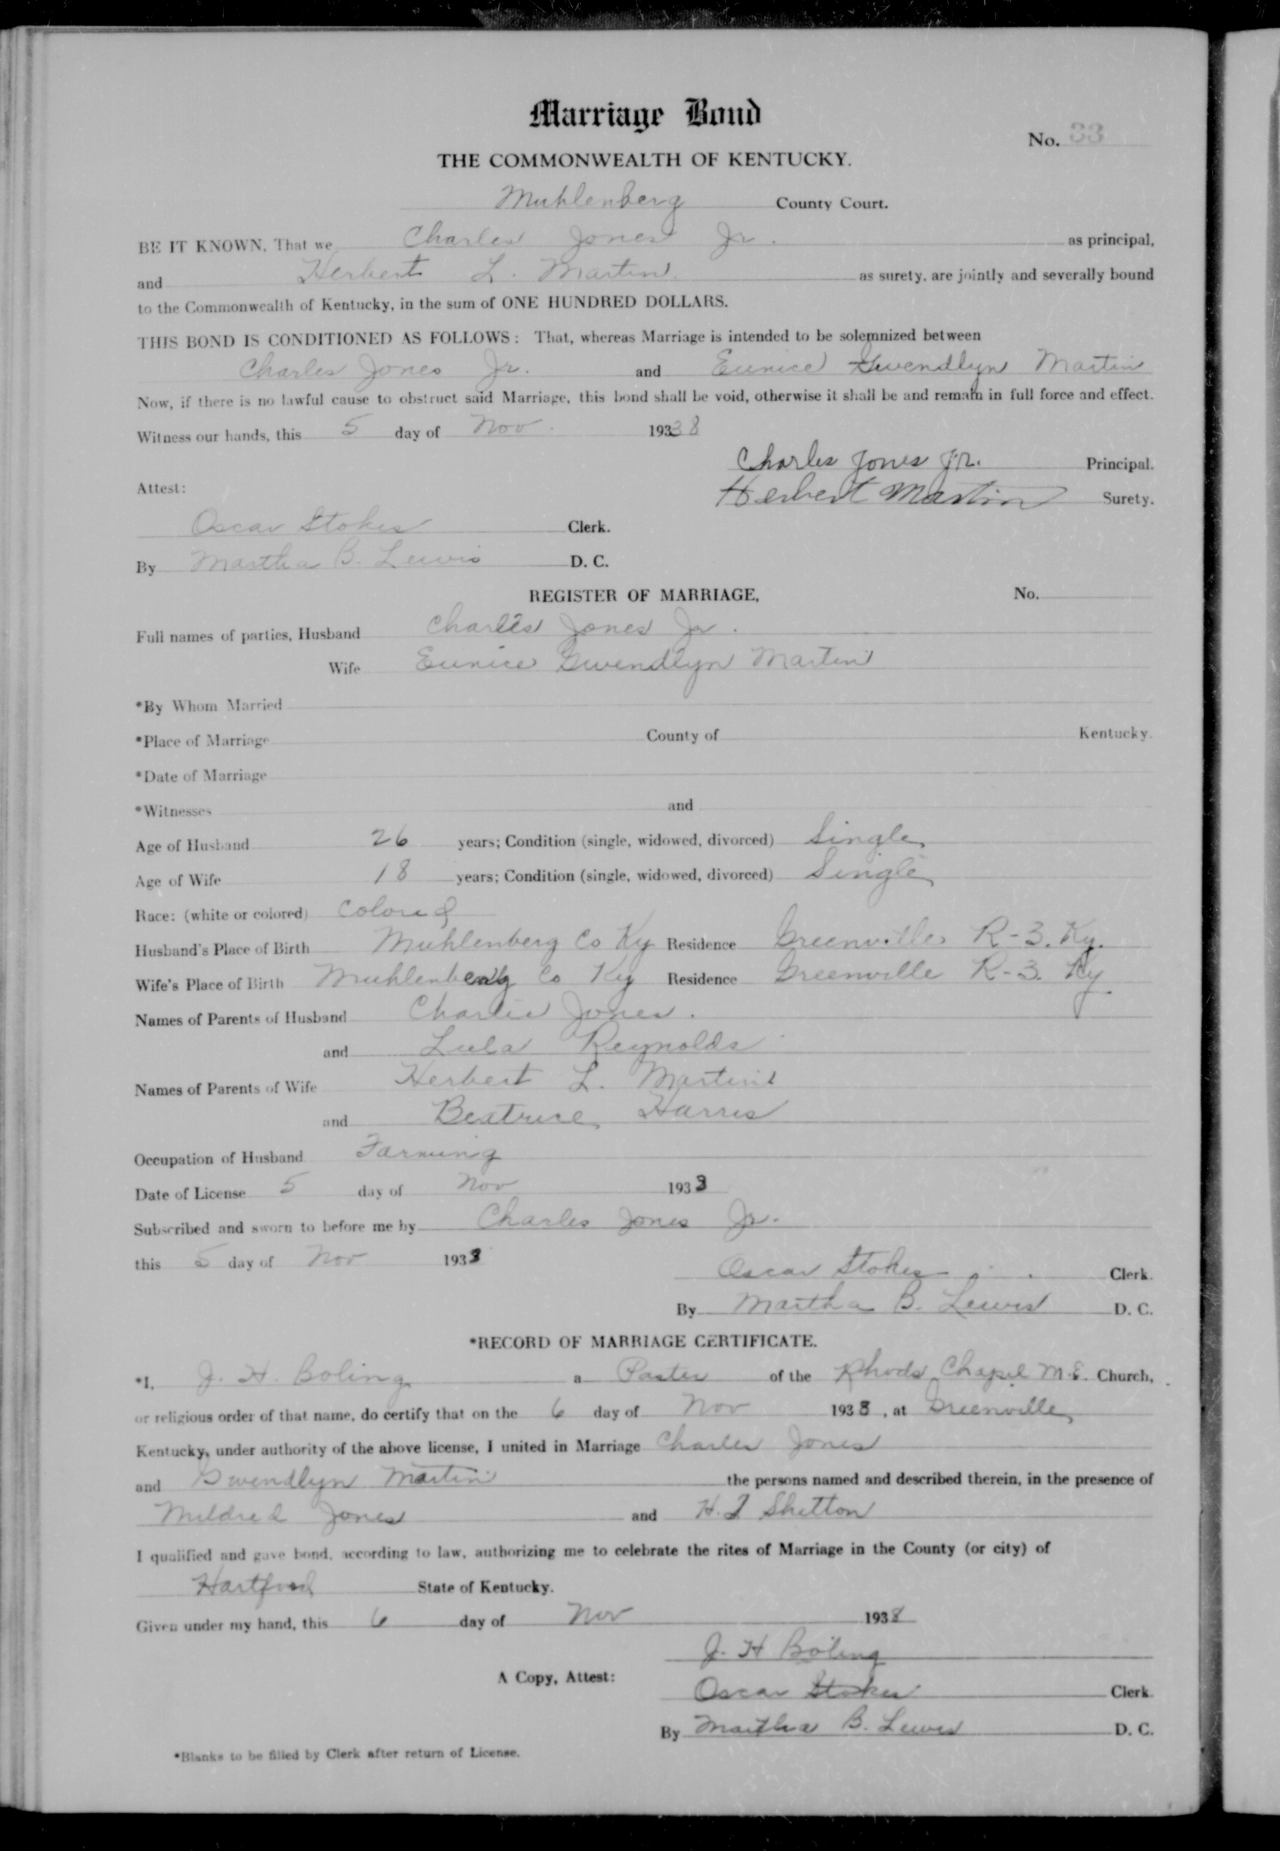 Marriage Bond
No. 33
THE COMMONWEALTH OF KENTUCKY.
Muhlenberg County Court.
BE IT KNOWN, That we Charles Jones Jr. as principal,
and Herbert L. Martin as surety, are jointly and severally bound
to the Commonwealth of Kentucky, in the sum of ONE HUNDRED DOLLARS.
THIS BOND IS CONDITIONED AS FOLLOWS: That, whereas Marriage is intended to be solemnized between
Charles Jones Jr. and Eunice Gwendlyn Martin
Now, if there is no lawful cause to obstruct said Marriage, this bond shall be void, otherwise it shall be and remain in full force and effect.
Witness our hands, this 5 day of Nov. 1938
Charles Jones Jr. Principal.
Attest: Herbert Martin Surety.
Oscar Stokes Clerk.
By Martha B. Lewis D. C.
REGISTER OF MARRIAGE, No.
Full names of parties, Husband Charles Jones Jr.
Wife Eunice Gwendlyn Martin
*By Whom Married
*Place of Marriage County of Kentucky.
*Date of Marriage
*Witnesses and
Age of Husband 26 years; Condition (single, widowed, divorced) Single
Age of Wife 18 years; Condition (single, widowed, divorced) Single
Race: (white or colored) Colored
Husband's Place of Birth Muhlenberg Co Ky Residence Greenville R-3. Ky.
Wife's Place of Birth Muhlenberg Co Ky Residence Greenville R-3. Ky
Names of Parents of Husband Charlie Jones.
and Lula Reynolds
Names of Parents of Wife Herbert L. Martin
and Beatrice Harris
Occupation of Husband Farming
Date of License 5 day of Nov 1938
Subscribed and sworn to before me by Charles Jones Jr.
this 5 day of Nov 1938
Oscar Stokes Clerk.
By Martha B. Lewis D. C.
*RECORD OF MARRIAGE CERTIFICATE.
*I, J. H. Boling a Pastor of the Rhods Chapel M.E. Church,
or religious order of that name, do certify that on the 6 day of Nov 1938, at Greenville
Kentucky, under authority of the above license, I united in Marriage Charles Jones
and Gwendlyn Martin the persons named and described therein, in the presence of
Mildred Jones and H. I Shelton
I qualified and gave bond, according to law, authorizing me to celebrate the rites of Marriage in the County (or city) of
Hartford State of Kentucky.
Given under my hand, this 6 day of Nov 1938
J. H Boling
A Copy, Attest: Oscar Stokes Clerk.
By Martha B. Lewis D. C.
*Blanks to be filled by Clerk after return of License.